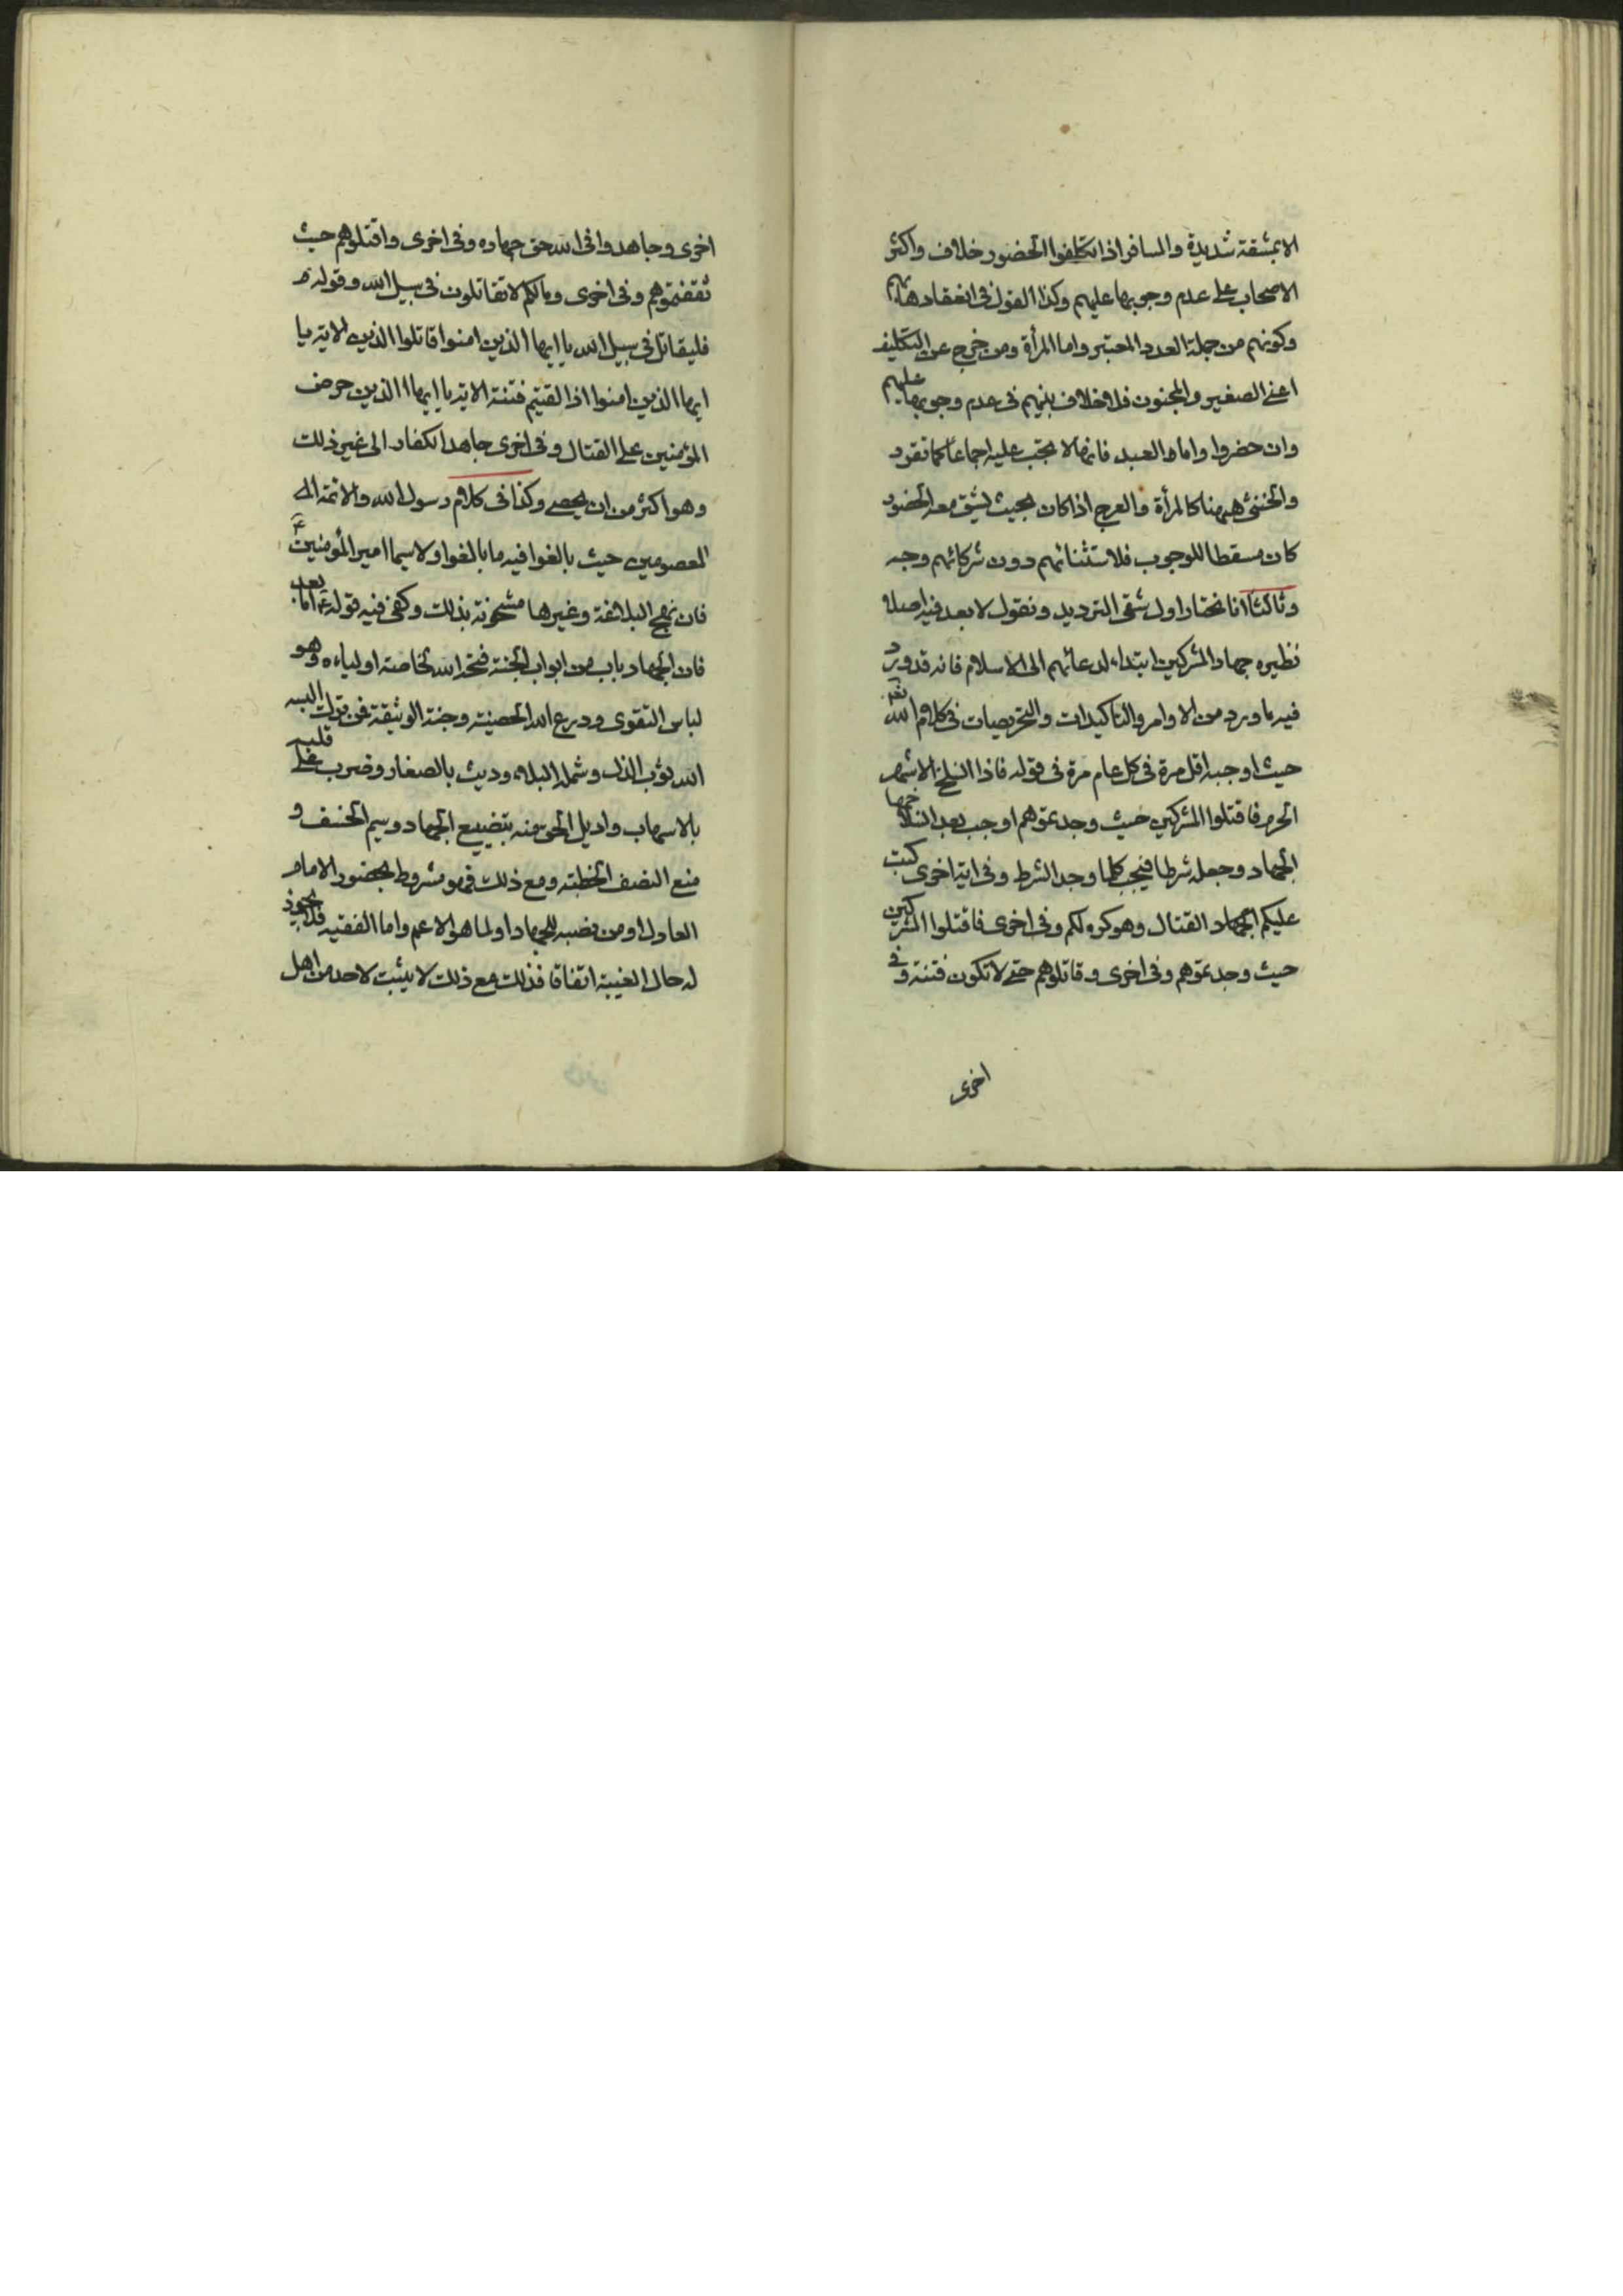 الا بمشقة شديدة والمسافر اذا تكلفوا الحضور خلاف واكثر
الاصحاب على عدم وجوبها عليهم وكذا القول فى انعقادها بهم
وكونهم من جملة العدد المعتبر واما المرأة ومن خرج عن التكليف
اعنى الصغير والمجنون فلا خلاف بينهم فى عدم وجوبها عليهم
وان حضروا واما العبد فانها لا تجب عليه اجماعا كما تقرر
والخنثى ههنا كالمرأة والعرج اذا كان بحيث يشق معه الحضور
كان مسقطا للوجوب فلاستثنائهم دون شركائهم وجه
وثالثا انا نختار اول شقى الترديد ونقول لا بعد فيه اصلا و
نظيره جهاد المشركين ابتداء لدعائهم الى الاسلام فانه قد ورد
فيه ما ورد من الاوامر والتاكيدات والتحريصات فى كلام الله تعم
حيث اوجبه اقل مرة فى كل عام مرة فى قوله فاذا انسلخ الاشهر
الحرم فاقتلوا المشركين حيث وجدتموهم اوجب بعد انسلاخها
الجهاد وجعله شرطا فيجب كلما وجد الشرط وفى اية اخرى كتب
عليكم الجهاد القتال وهو كره لكم وفى اخرى فاقتلوا المشركين
حيث وجدتموهم وفى اخرى وقاتلوهم حتى لا تكون فتنة وفى
اخرى
اخرى وجاهدوا فى الله حق جهاده وفى اخرى واقتلوهم حيث
ثقفتموهم وفى اخرى ومالكم لا تقاتلون فى سبيل الله وقوله
فليقاتل فى سبيل الله يا ايها الذين امنوا قاتلوا الذين الاية يا
ايها الذين امنوا اذا لقيتم فتنة الاية يا ايها الذين حرض
المؤمنين على القتال وفى اخرى جاهد الكفار الى غير ذلك
وهو اكثر من ان يحصى وكذا فى كلام رسول الله والائمة
المعصومين حيث بالغوا فيه ما بالغوا ولا سيما امير المؤمنين ع
فان نهج البلاغة وغيرها مشحونة بذلك وكفى فيه قوله ع اما بعد
فان الجهاد باب من ابواب الجنة فتحه الله لخاصة اولياءه وهو
لباس التقوى ودرع الله الحصينة وجنة الوثيقة فمن ترك البسه
الله ثوب الذل وشمله البلاء وديث بالصغار وضرب على قلبه
بالاسهاب واديل الحق منه بتضييع الجهاد وسيم الخسف و
منع النصف الخطبة ومع ذلك فهو مشروط بحضور الامام
العادل او من نصبه للجهاد او لما هو الاعم واما الفقيه فلا يجوز
له حال الغيبة اتفاقا فذلك مع ذلك لا يثبت لاحد من اهل